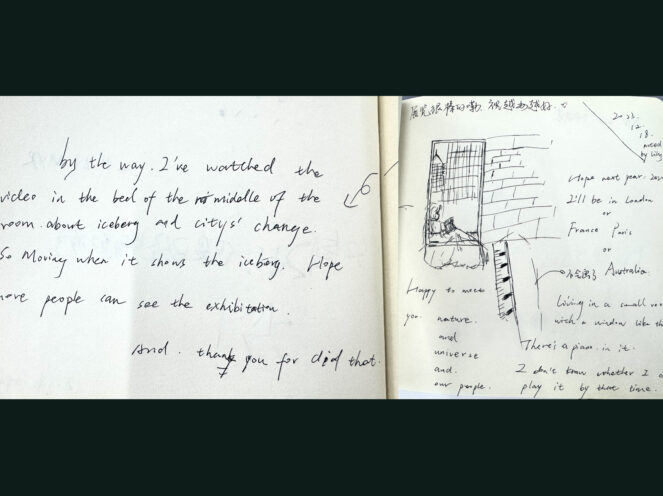 by the way. I've watched the
video in the bed of the middle of the
room. about iceberg and citys' change.
So Moving when it shows the iceberg. Hope
more people can see the exhibitation.
And. thank you for did that.
6
展览很棒的嘞, 祝越办越好.
2023.
12.
18.
by
Hope next year.
I'll be in London
or
France Paris
or
Australia.
Living in a small
with a window like
There's a piano. in it.
I don't know whether I
play it by that time.
Happy to meet
you. nature.
and
universe
and.
our people.